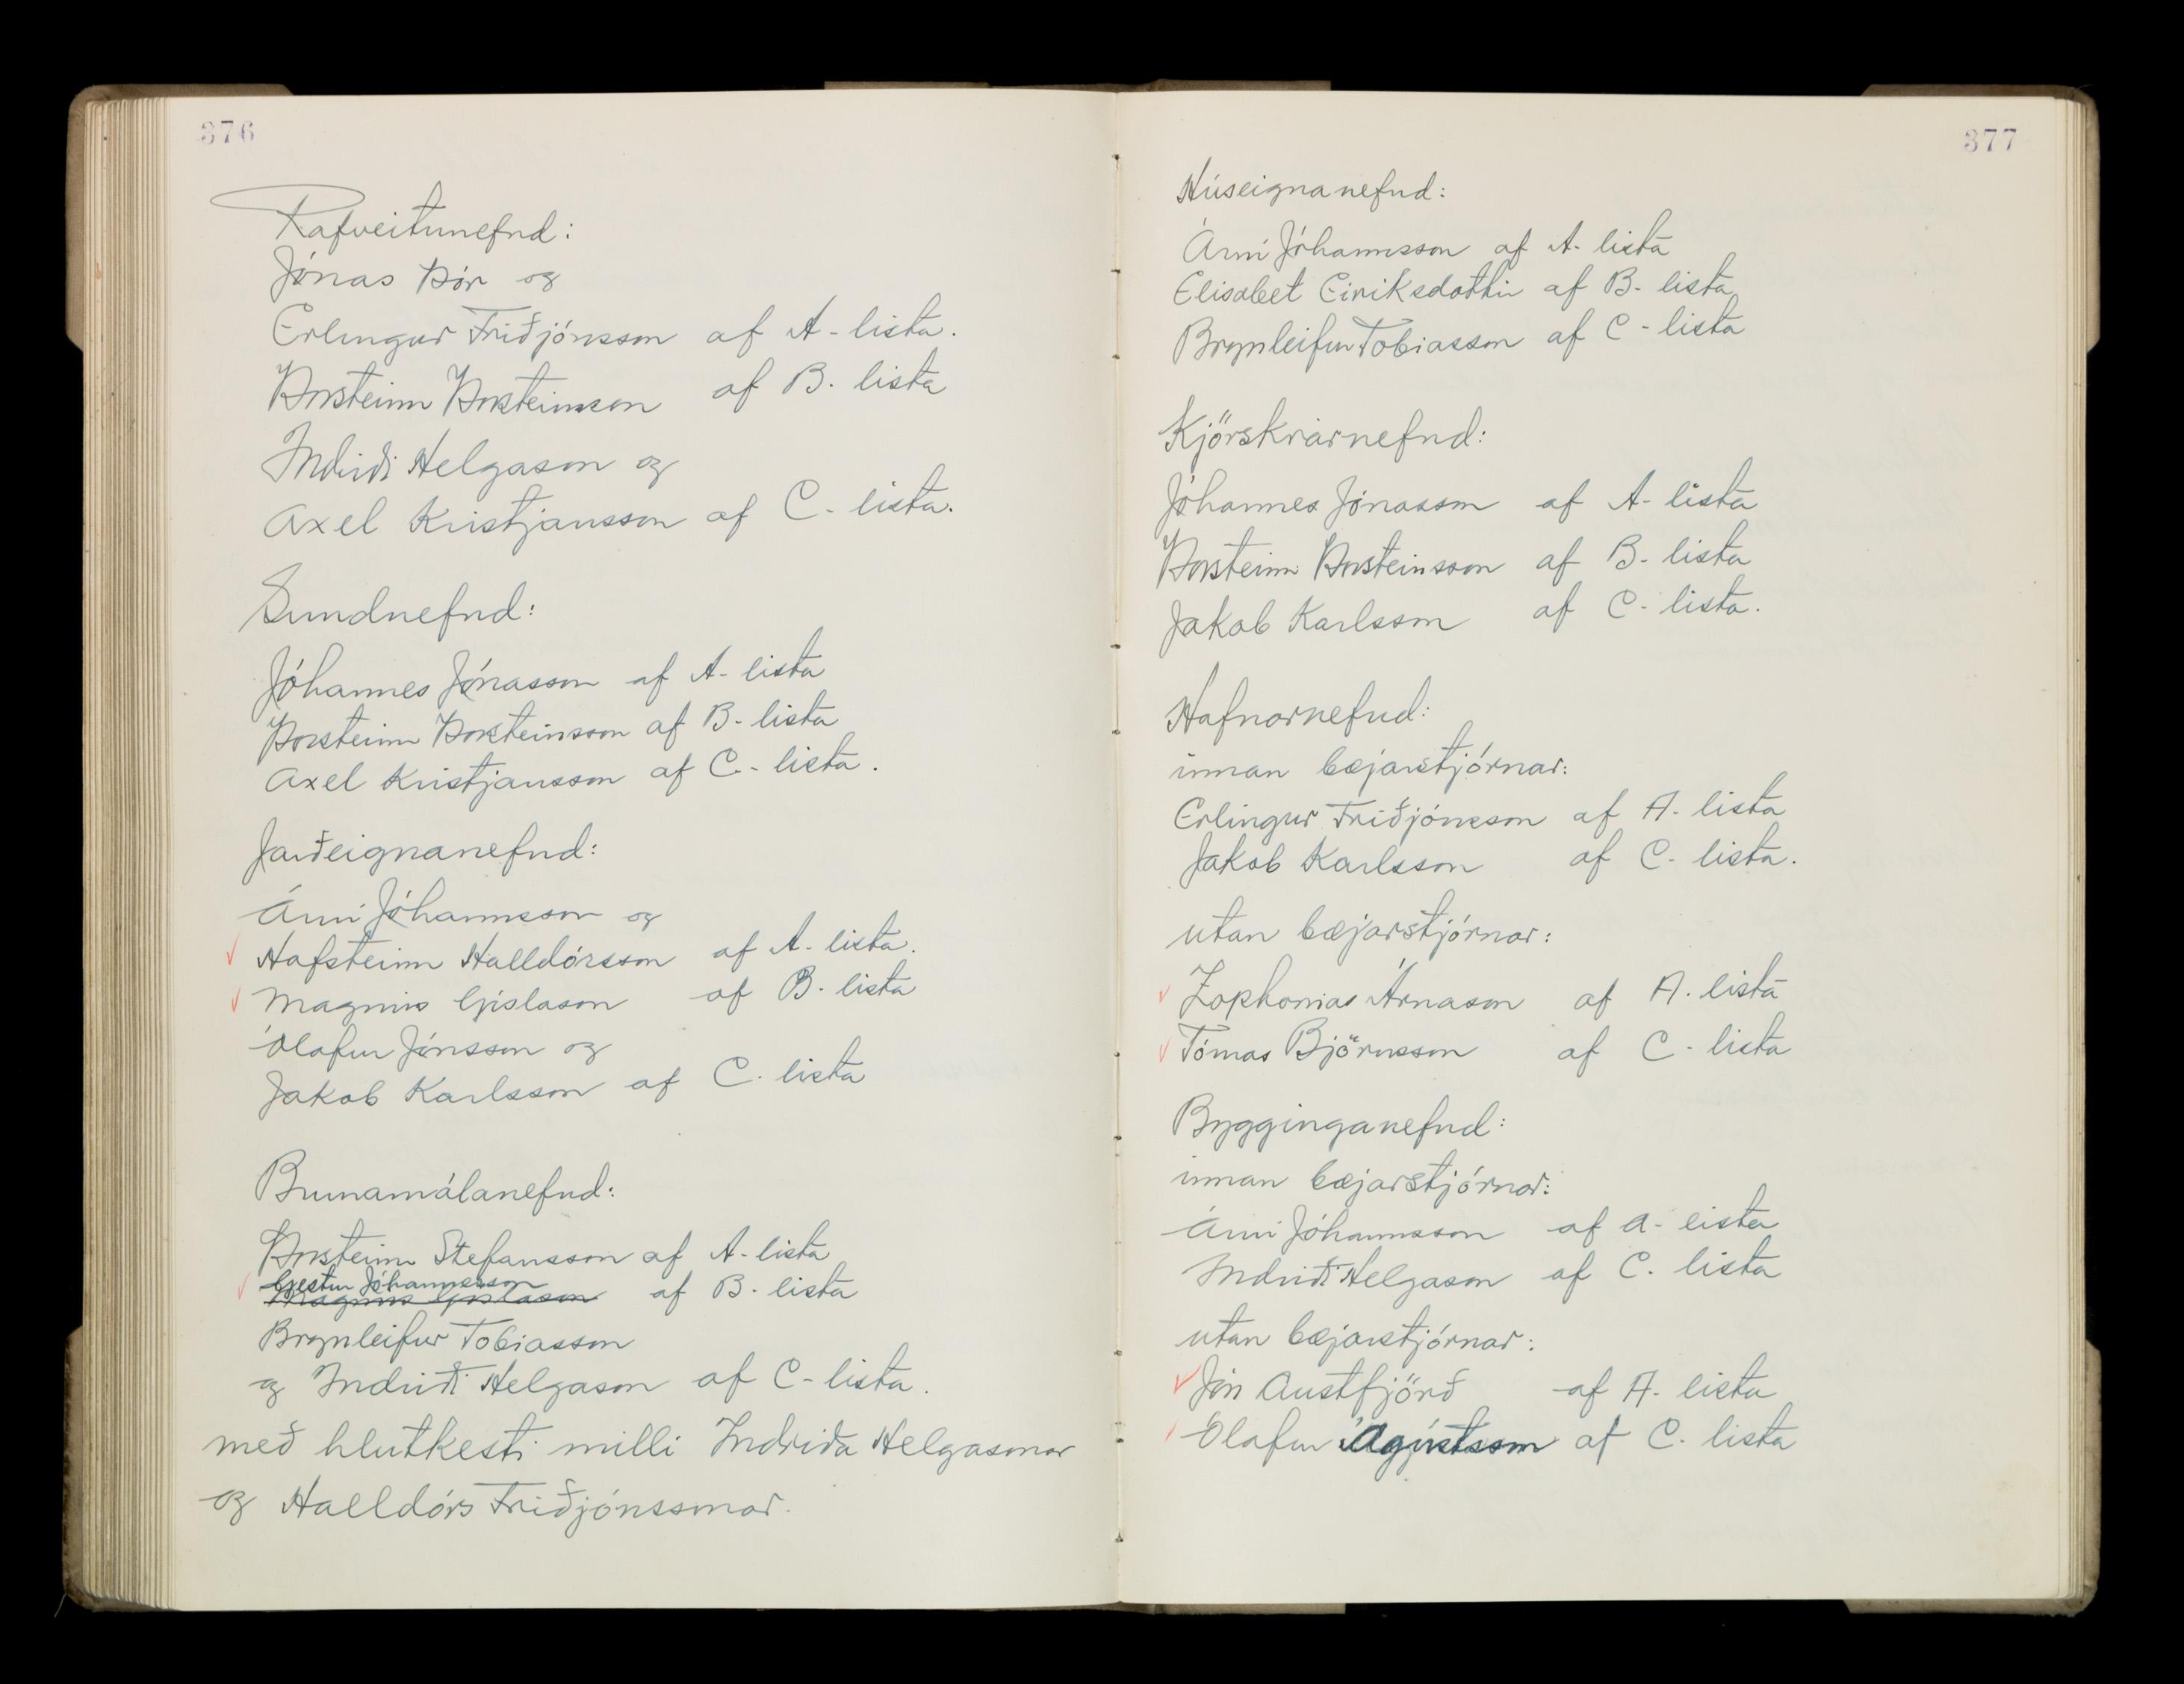 376
Rafveitunefnd:
Jónas Þór og
Erlingur Friðjónsson af A-lista.
Þorsteinn Þorsteinsson af B. lista
Indriði Helgason og
Axel Kristjansson af C-lista.
Sundnefnd:
Jóhannes Jónasson af A-lista
Þorsteinn Þorsteinsson af B-lista
Axel Kristjansson af C-lista.
Jarðeignanefnd:
Árni Jóhannsson og
Hafsteinn Halldórsson af A-lista.
Magnús Gíslason af B. lista
Ólafur Jónsson og
Jakob Karlsson af C. lista
Brunamálanefnd:
Þorsteinn Stefansson af A-lista
Gestur Jóhannesson
Magnús Gíslason af B. lista
Brynleifur Tobiasson
og Indriði Helgason af C-lista.
með hlutkesti milli Indriða Helgasonar
og Halldórs Friðjónssonar.
377
Húseignanefnd:
Árni Jóhannsson af A-lista
Elisabet Eiriksdottir af B-lista
Brynleifur Tobiasson af C-lista
Kjörskrárnefnd:
Jóhannes Jónasson af A-lista
Þorsteinn Þorsteinsson af B-lista
Jakob Karlsson af C-lista.
Hafnarnefnd:
innan bæjarstjórnar:
Erlingur Friðjónsson af A. lista
Jakob Karlsson af C-lista.
utan bæjarstjórnar:
Zophonias Árnason af A. lista
Tómas Björnsson af C-lista
Bygginganefnd:
innan bæjarstjórnar:
Árni Jóhannsson af A-lista
Indriði Helgason af C. lista
utan bæjarstjórnar:
Jón Austfjörð af A. lista
Ólafur Ágústsson af C. lista